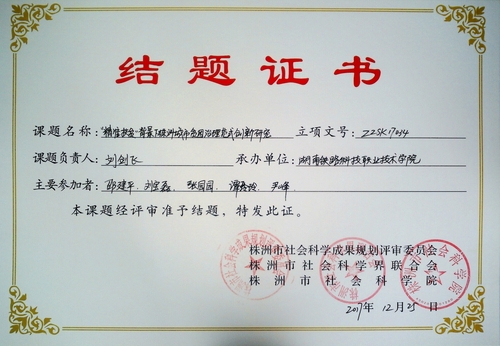 结题证书
课题名称：“精准扶贫”背景下株洲城市贫困治理范式创新研究 立项文号：ZZSK17014
课题负责人：刘剑飞 承办单位：湖南铁路科技职业技术学院
主要参加者：邵建平、张园园、尹峰
本课题经评审准予结题，特发此证。
株洲市社会科学成果规划评审委员会
株洲市社会科学界联合会
株洲市社会科学院
2017年12月25日